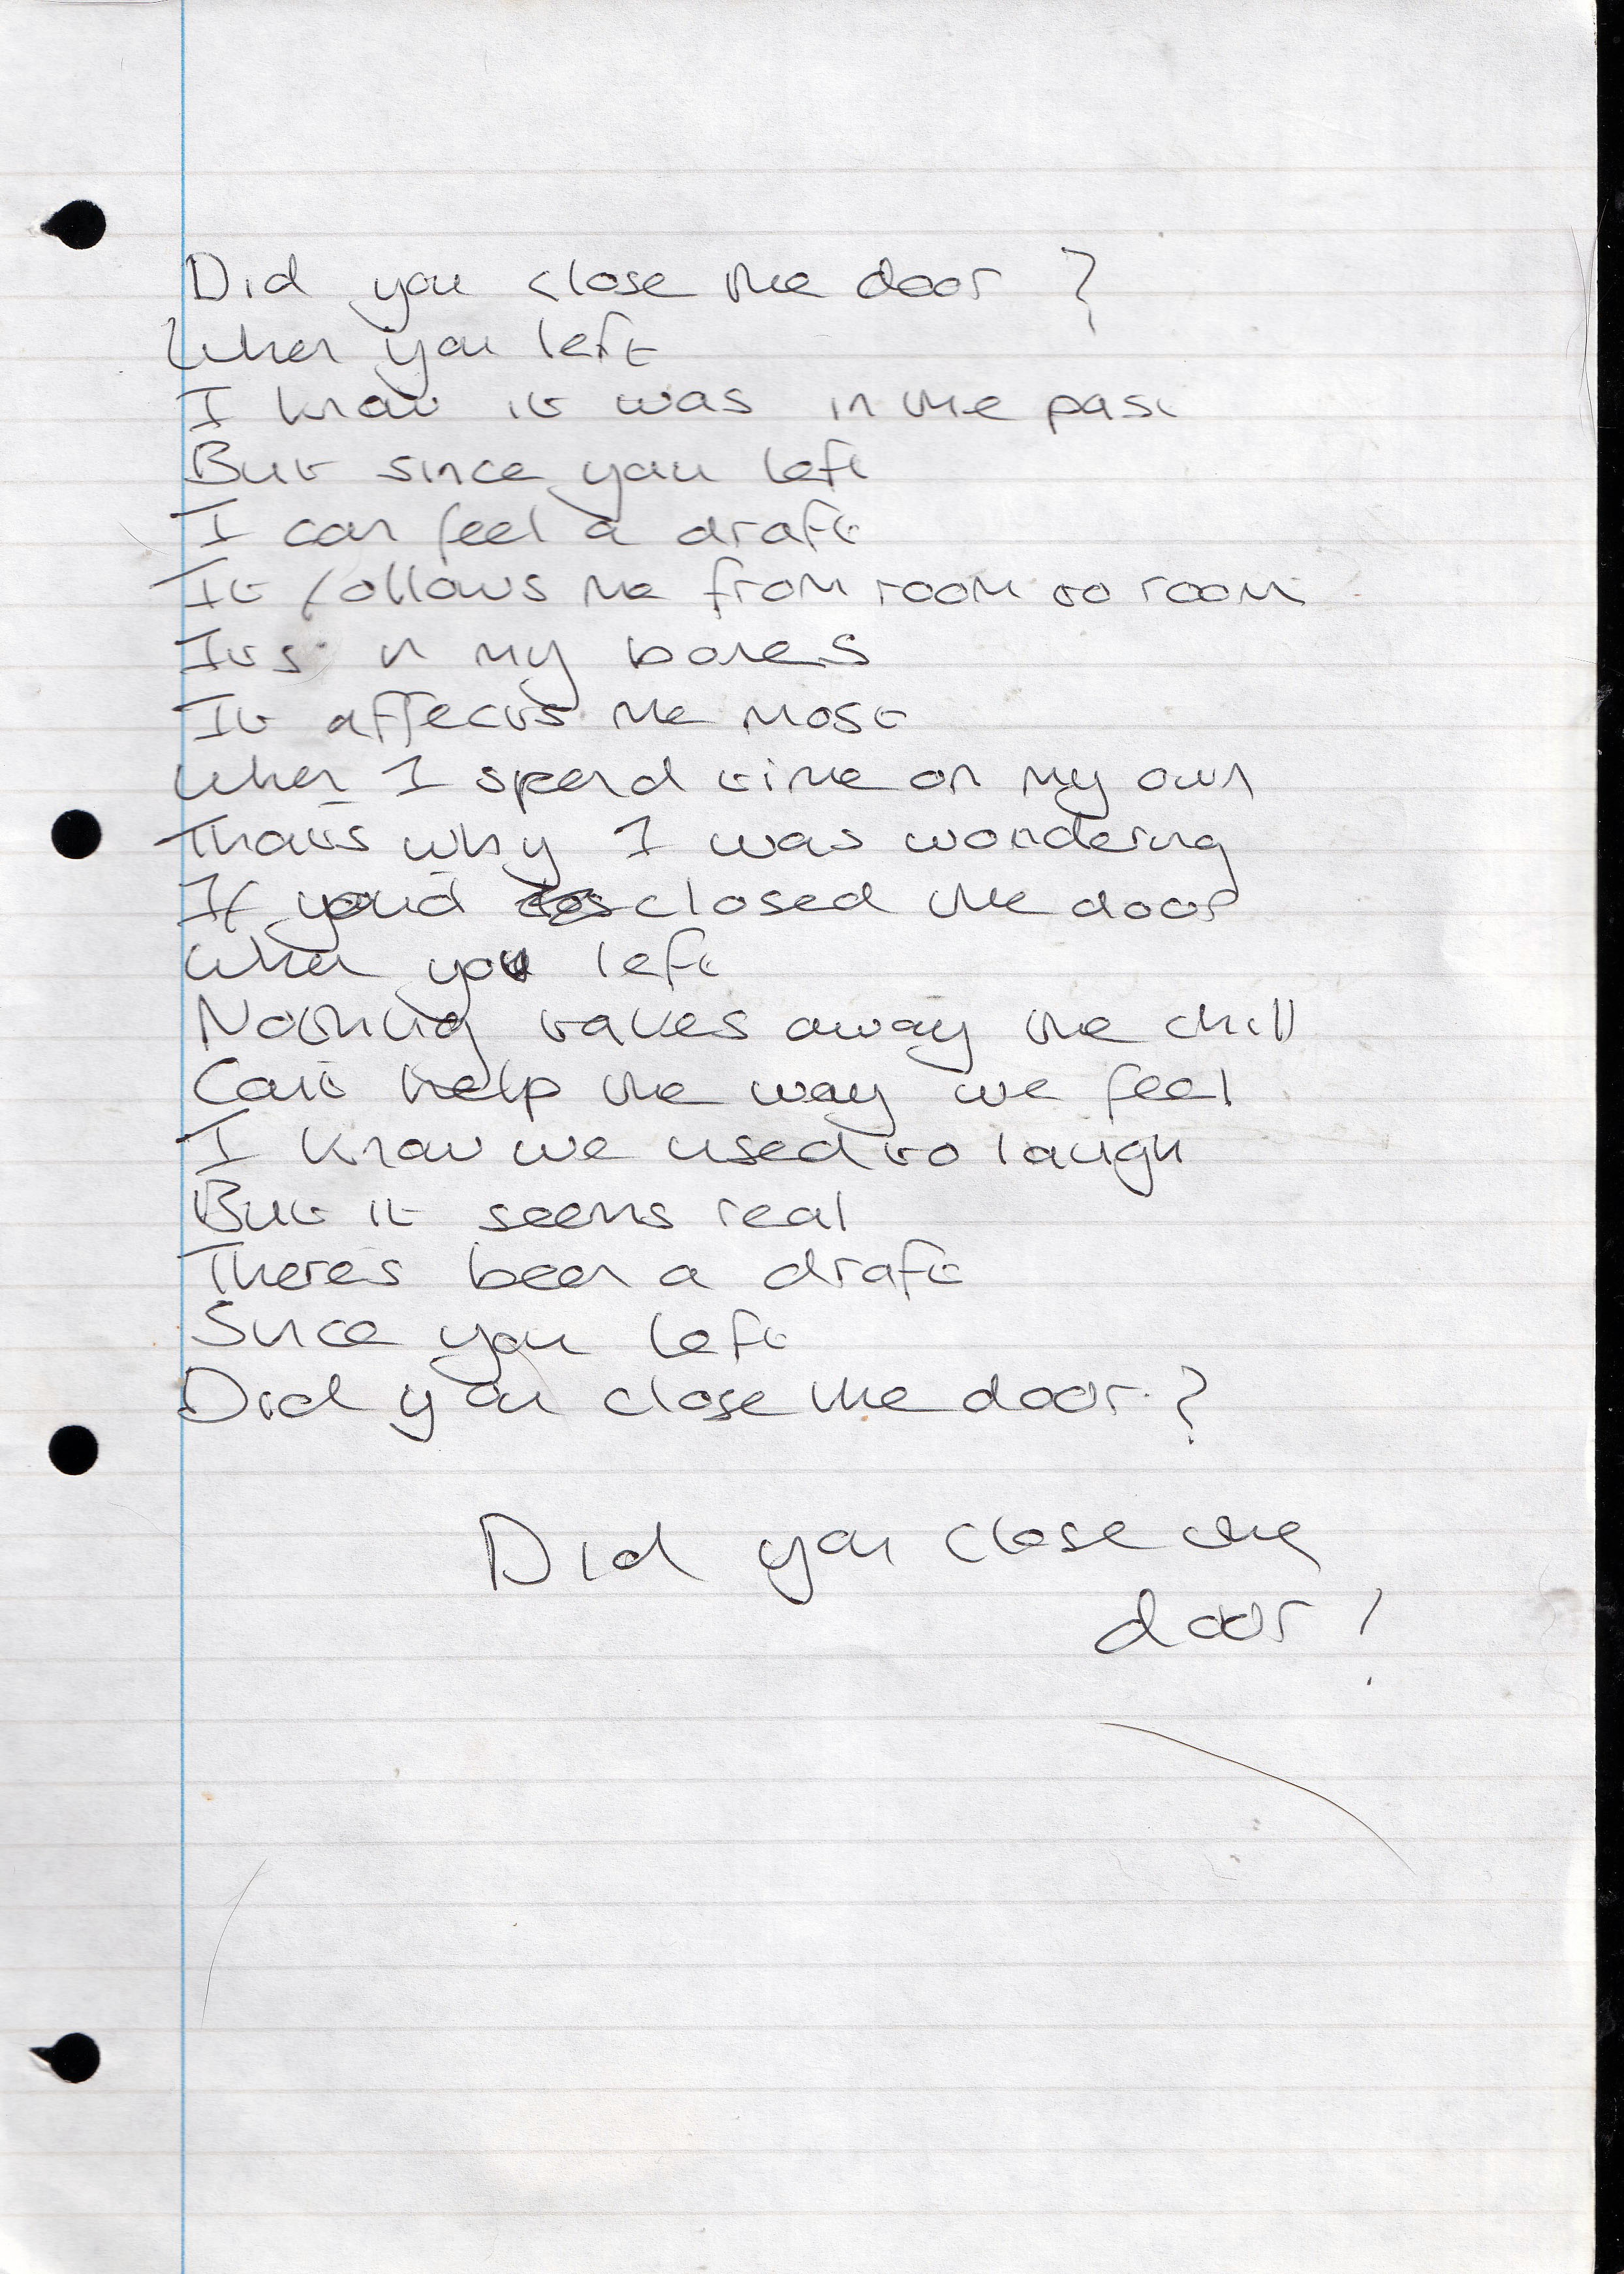 Did you close the door ?
When you left
I know it was in the past
But since you left
I can feel a draft
It follows me from room to room
Its in my bones
It affects me most
When I spend time on my own
Thats why I was wondering
If youd closed the door
When you left
Nothing takes away the chill
Cant help the way we feel
I know we used to laugh
But it seems real
There's been a draft
Since you left
Did you close the door ?
Did you close the
door !